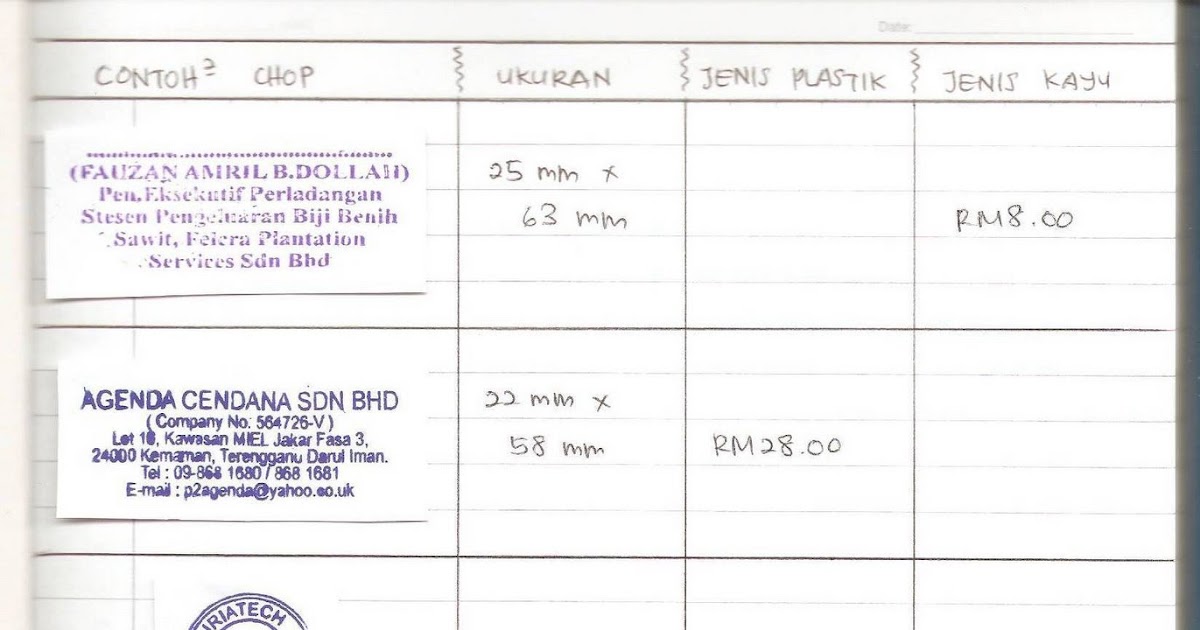 Date:
CONTOH² CHOP UKURAN JENIS PLASTIK JENIS KAYU
(FAUZAN AMRIL B.DOLLAH)
Pen.Eksekutif Perladangan
Stesen Pengeluaran Biji Benih
Sawit, Felcra Plantation
Services Sdn Bhd
25 mm x
63 mm
RM8.00
AGENDA CENDANA SDN BHD
(Company No: 564726-V)
Lot 18, Kawasan MIEL Jakar Fasa 3,
24000 Kemaman, Terengganu Darul Iman.
Tel : 09-868 1680 / 868 1681
E-mail : p2agenda@yahoo.co.uk
22 mm x
58 mm
RM28.00
RIATECH